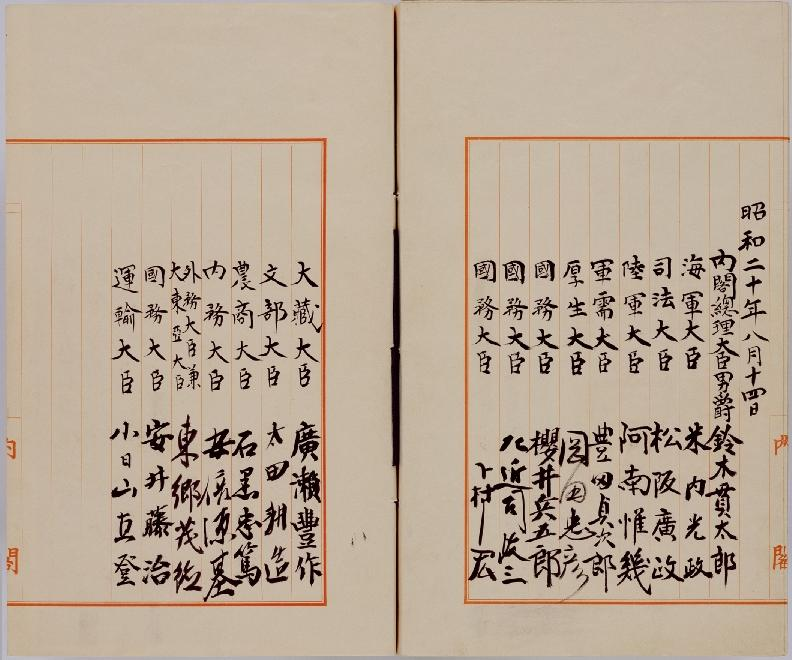 昭和二十年八月十四日
內閣總理大臣男爵鈴木貫太郎
海軍大臣 米內光政
司法大臣 松阪廣政
陸軍大臣 阿南惟幾
軍需大臣 豊田貞次郎
厚生大臣 岡田忠彦
國務大臣 櫻井兵五郎
國務大臣 左近司政三
國務大臣 下村宏
內閣
大藏大臣 廣瀬豐作
文部大臣 太田耕造
農商大臣 石黒忠篤
內務大臣 安倍源基
外務大臣兼
大東亞大臣 東郷茂徳
國務大臣 安井藤治
運輸大臣 小日山直登
內閣